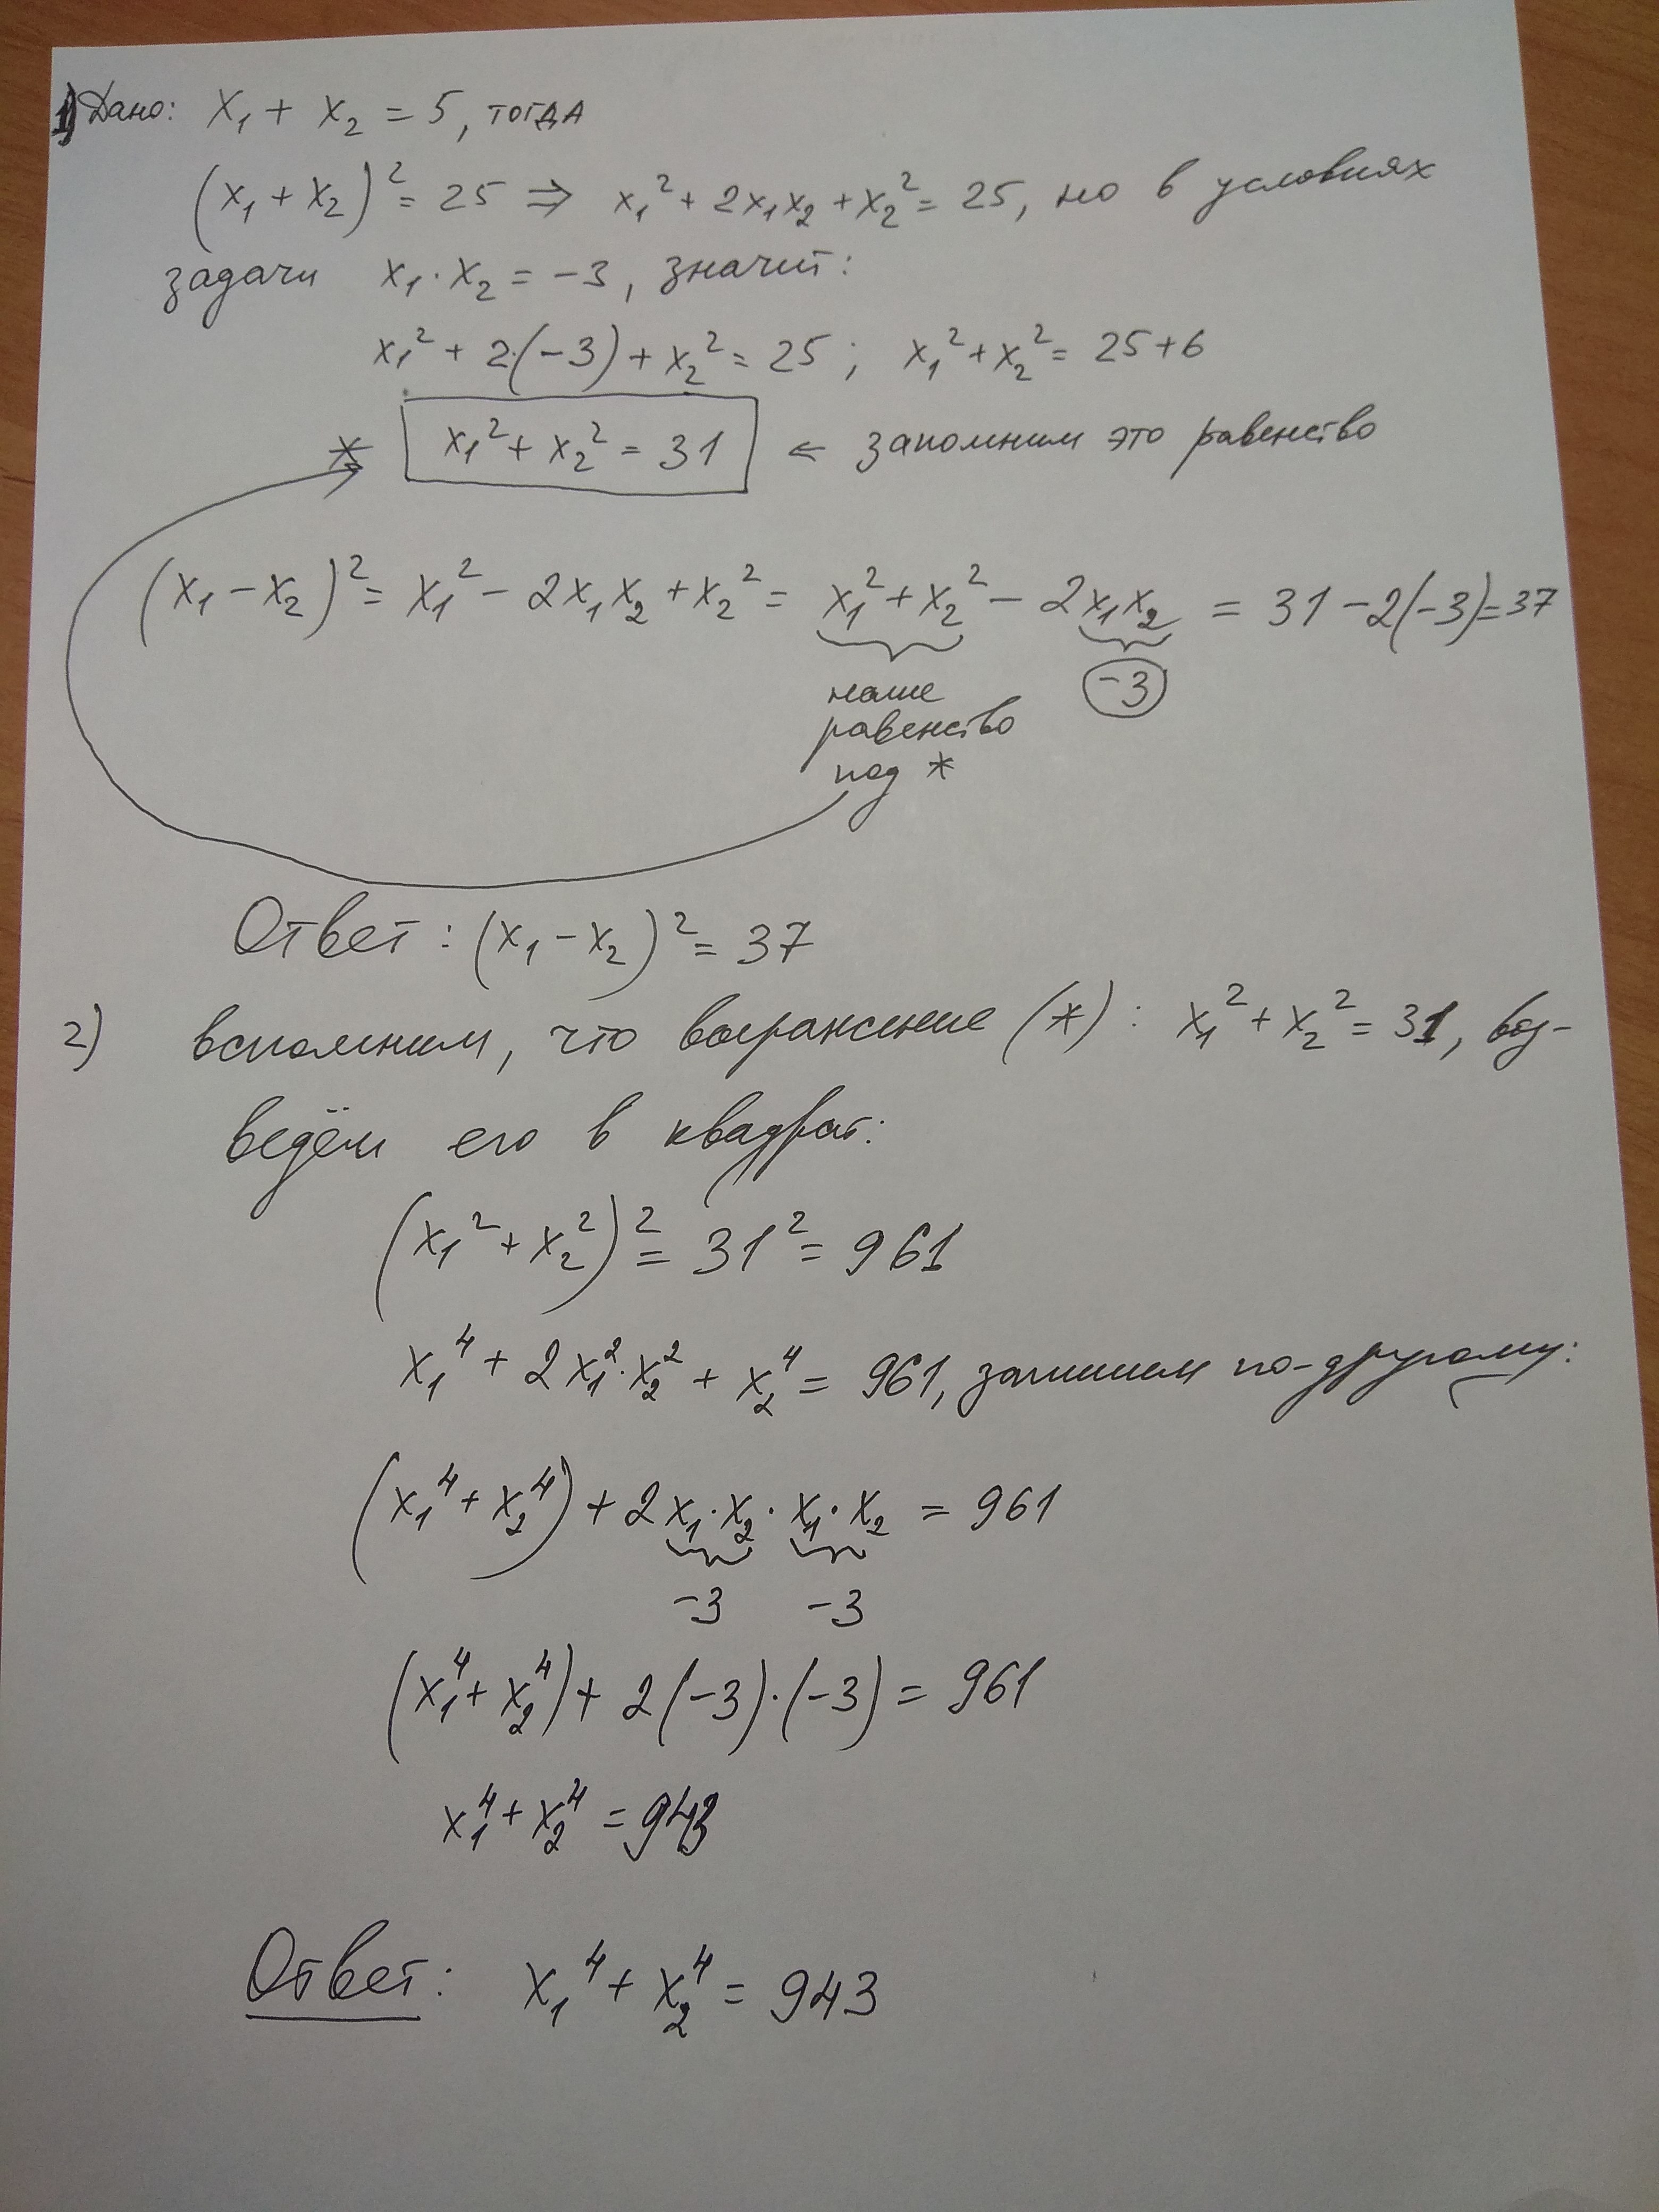 1) Дано: x₁ + x₂ = 5, тогда
(x₁ + x₂)² = 25 ⇒ x₁² + 2x₁x₂ + x₂² = 25, но в условиях
задачи x₁ · x₂ = -3, значит:
x₁² + 2·(-3) + x₂² = 25 ; x₁² + x₂² = 25 + 6
* x₁² + x₂² = 31 ⇐ запомним это равенство
(x₁ - x₂)² = x₁² - 2x₁x₂ + x₂² = x₁² + x₂² - 2x₁x₂ = 31 - 2(-3) = 37
наше
равенство
под *
-3
Ответ : (x₁ - x₂)² = 37
2) вспомним, что выражение (*) : x₁² + x₂² = 31, воз-
ведём его в квадрат:
(x₁² + x₂²)² = 31² = 961
x₁⁴ + 2x₁² · x₂² + x₂⁴ = 961, запишем по-другому:
(x₁⁴ + x₂⁴) + 2x₁ · x₂ · x₁ · x₂ = 961
-3 -3
(x₁⁴ + x₂⁴) + 2(-3) · (-3) = 961
x₁⁴ + x₂⁴ = 943
Ответ : x₁⁴ + x₂⁴ = 943